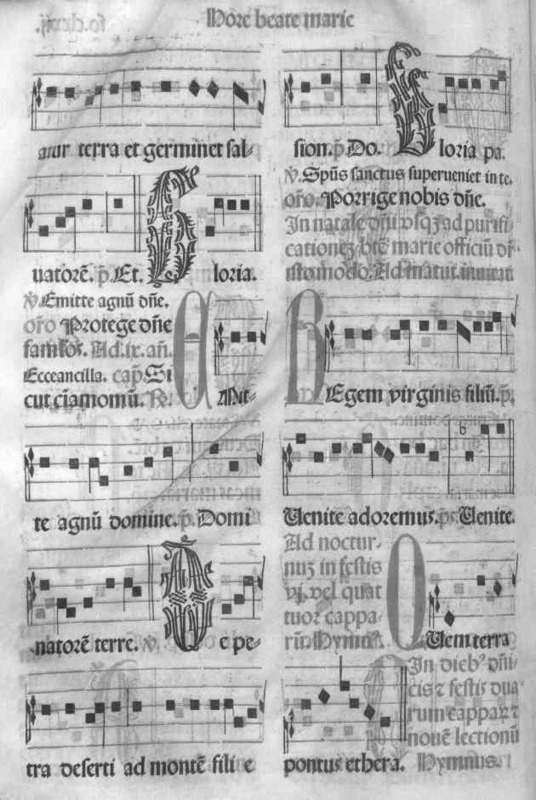 Hore beate marie
atur terra et germinet sal-
uatorē. p̄. Et. Gloria.
℣. Emitte agnū dñe.
oro Protege dñe
famlos. Ad.ix. añ.
Ecce ancilla. cap. Si
cut ciāmomū. ℟. Emit-
te agnū domine. p̄. Domi
natorē terre. ℣. De pe-
tra deserti ad montē filie
sion. p̄. Do. Gloria pa.
℣. Spūs sanctus superueniet in te.
oro. Porrige nobis dñe.
In natale dñi vsq; ad purifi
cationez btē marie officiū dr̄
isto modo. Ad matut. inuitat
Regem virginis filiū. p̄.
Uenite adoremus. ps. Uenite.
Ad noctur-
nuz in festis
vj. vel quat
tuor cappa-
rū. Hymn⁹.
Quem terra
pontus ethera.
In dieb⁹ dñi-
cis ⁊ festis dua
rum cappaꝝ ⁊
nouē lectionū
Hymnus.